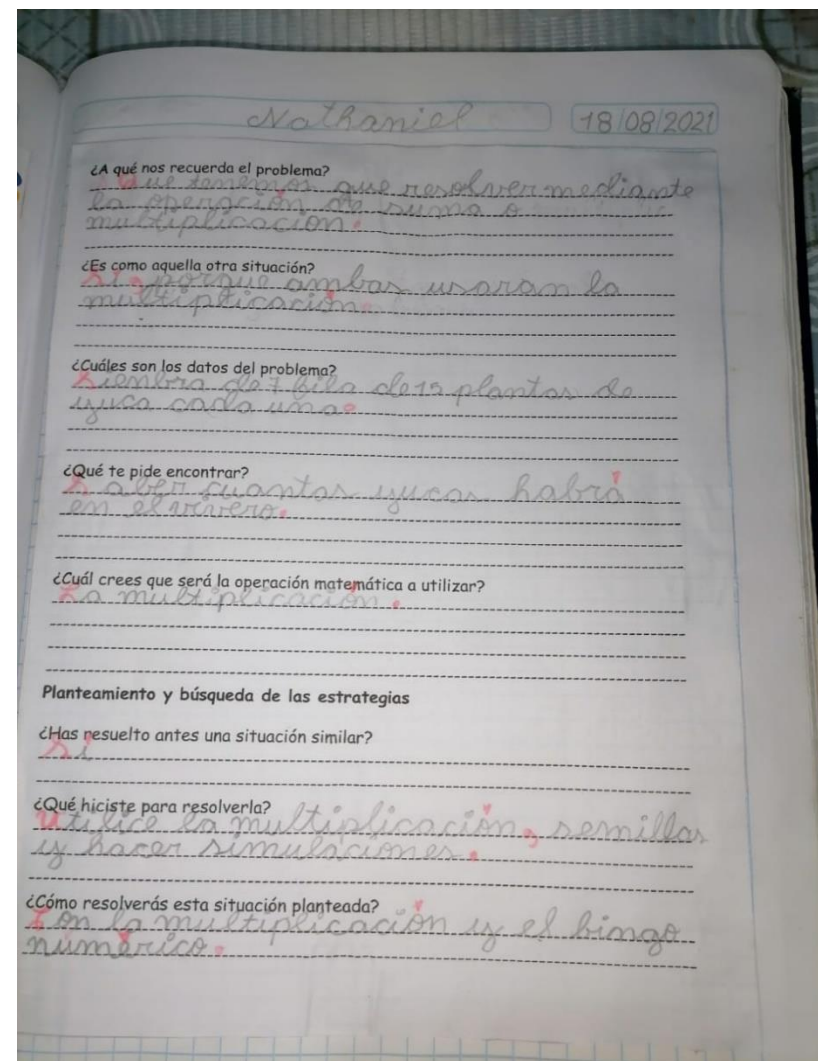 Nathaniel 18/08/2021
¿A qué nos recuerda el problema?
Que tenemos que resolver mediante
la operación de suma o
multiplicación.
¿Es como aquella otra situación?
Si, porque ambas usaran la
multiplicación.
¿Cuáles son los datos del problema?
Siembra de 7 fila de 12 plantas de
yuca cada una.
¿Qué te pide encontrar?
Saber cuantas yucas habrá
en el vivero.
¿Cuál crees que será la operación matemática a utilizar?
La multiplicación.
Planteamiento y búsqueda de las estrategias
¿Has resuelto antes una situación similar?
Si
¿Qué hiciste para resolverla?
Utilice la multiplicación, semillas
y hacer simulaciones.
¿Cómo resolverás esta situación planteada?
Con la multiplicación y el bingo
numérico.